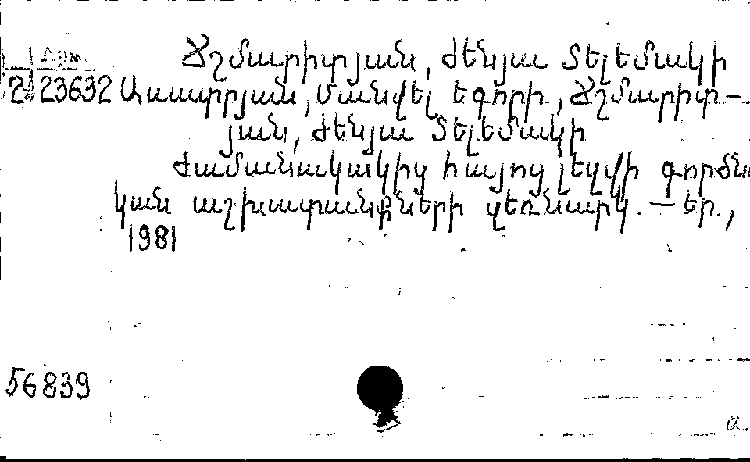 Ճշմարիտյան, Ժենյա Տելեմակի
2 23632 Ասատրյան, Մանվել Եգորի, Ճշմարիտ-
յան, Ժենյա Տելեմակի
Ժամանակակից հայոց լեզվի գործնա
կան աշխատանքների ձեռնարկ. — Եր.,
1981
56839